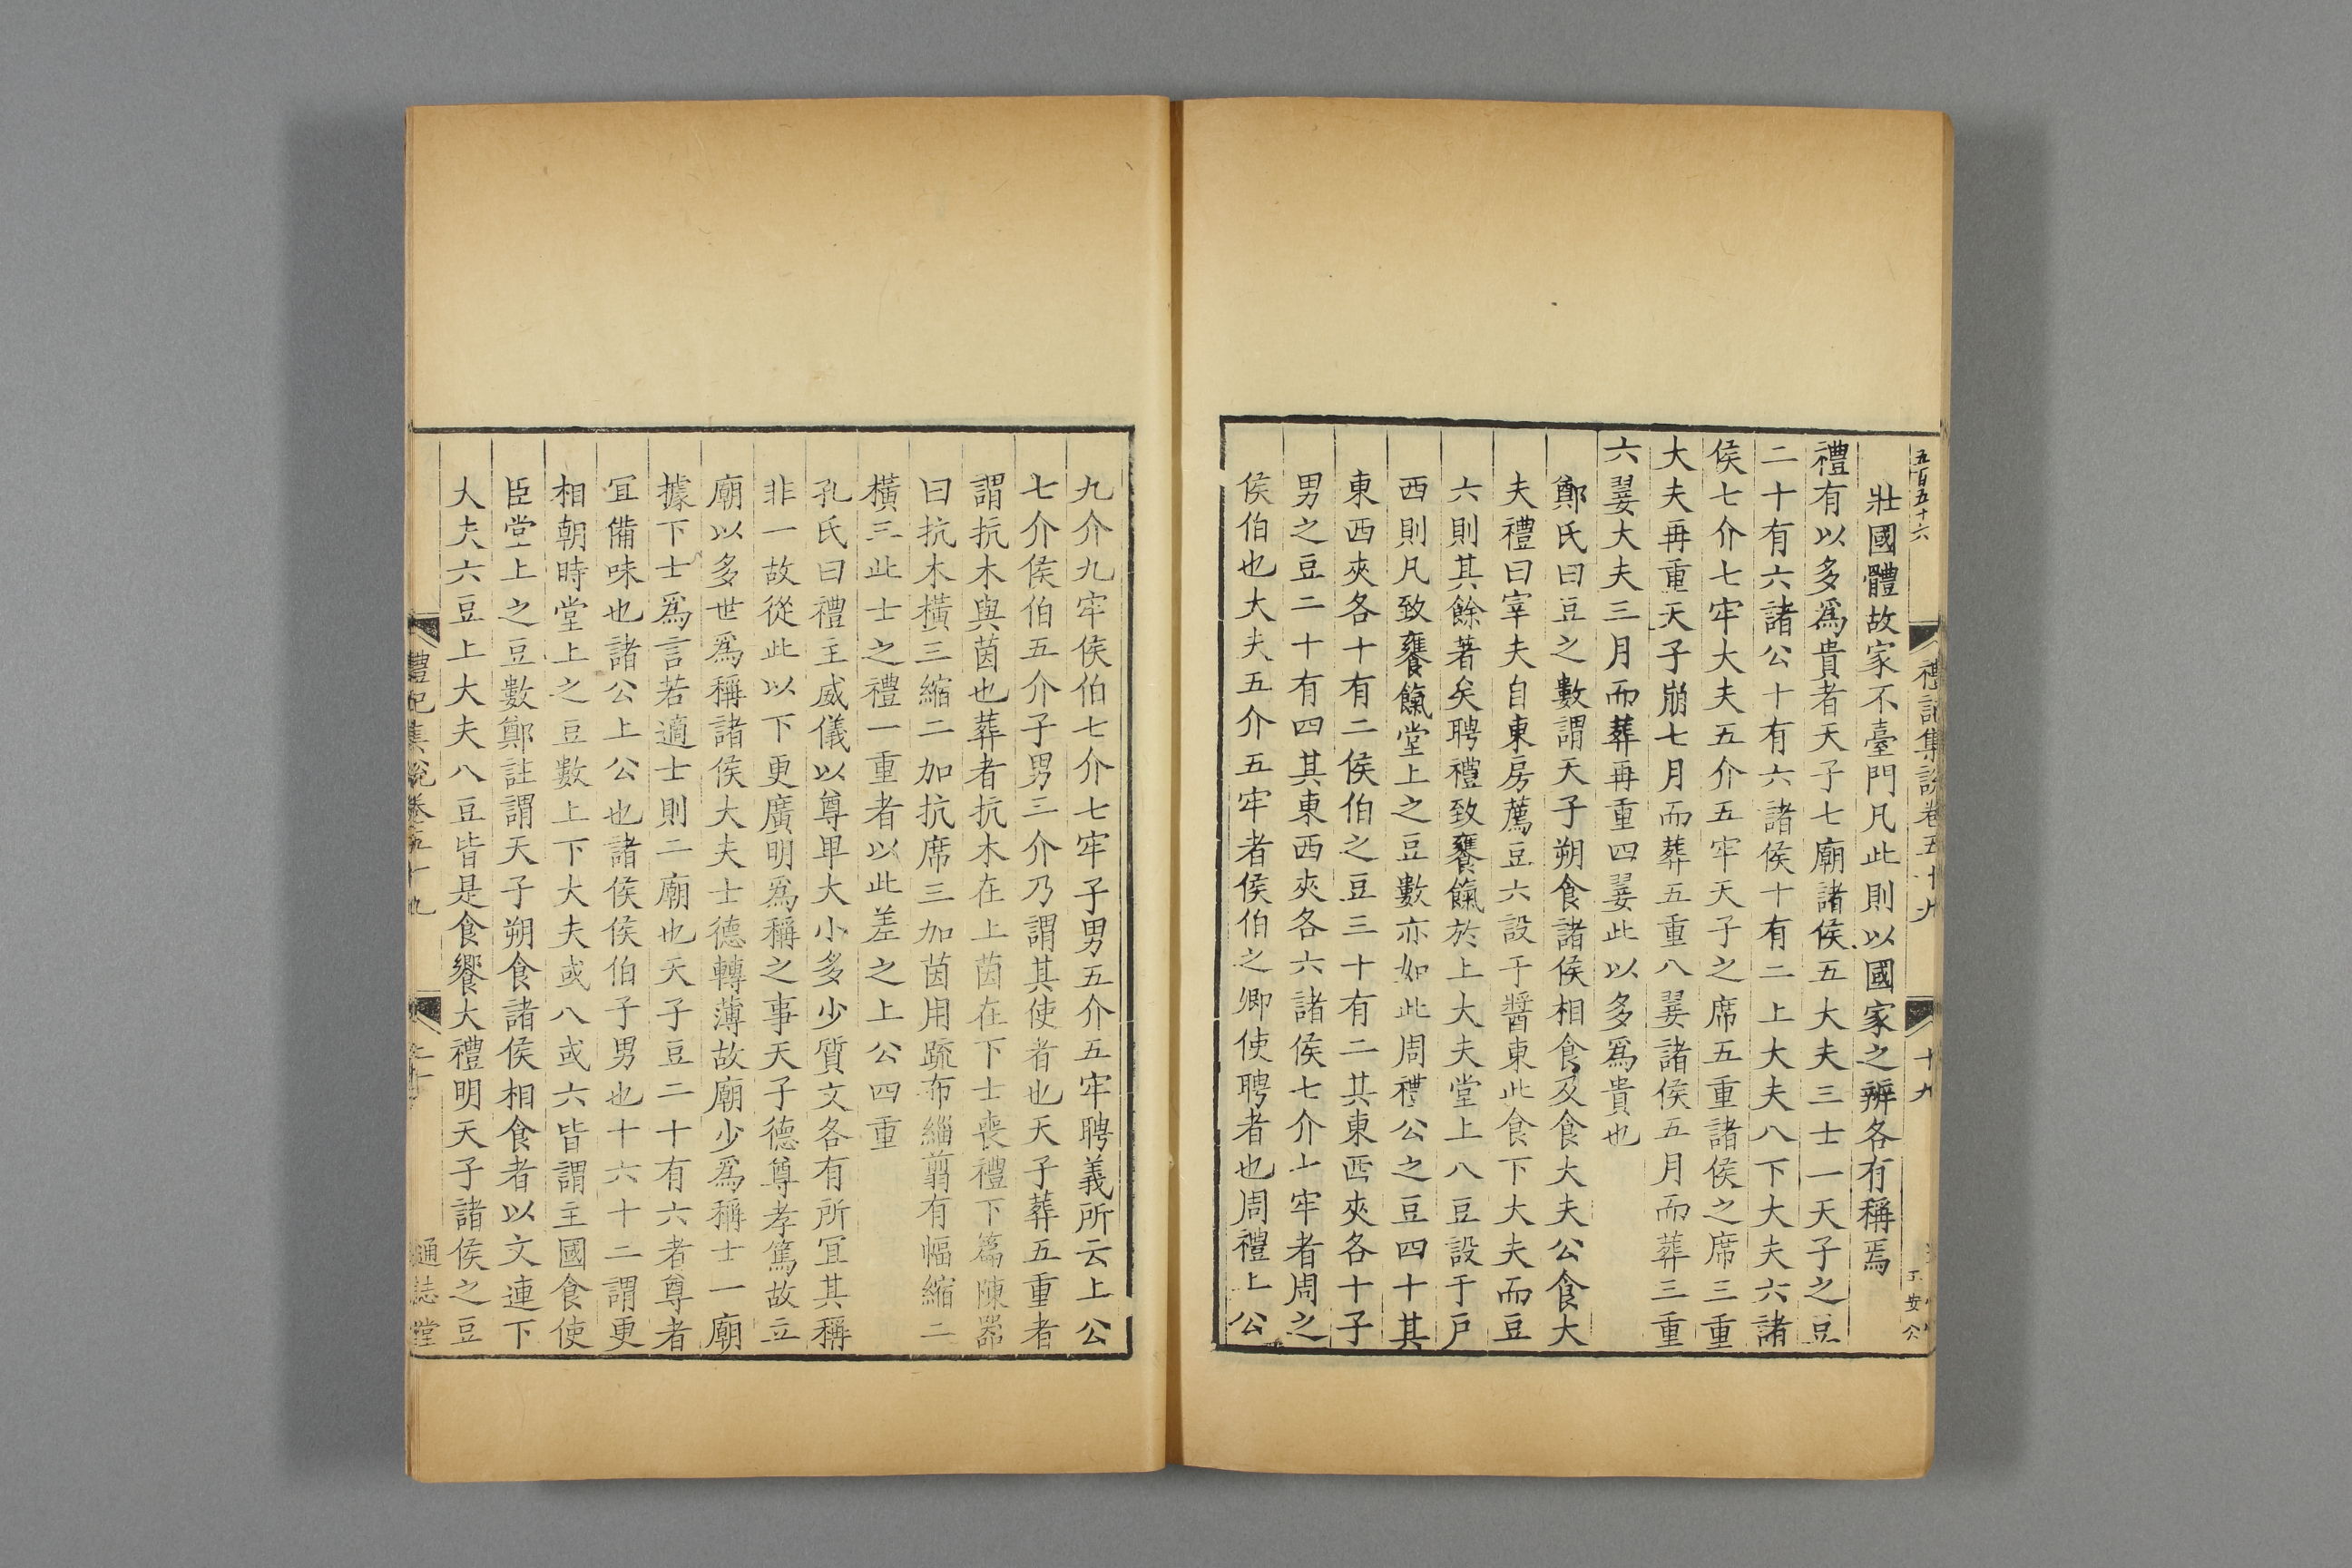 五百五十六
禮記集說卷五十九
十九
壯國體故家不臺門凡此則以國家之辨各有稱焉
禮有以多爲貴者天子七廟諸侯五大夫三士一天子之豆
二十有六諸公十有六諸侯十有二上大夫八下大夫六諸
侯七介七牢大夫五介五牢天子之席五重諸侯之席三重
大夫再重天子崩七月而葬五重八翣諸侯五月而葬三重
六翣大夫三月而葬再重四翣此以多爲貴也
鄭氏曰豆之數謂天子朔食諸侯相食及食大夫公食大
夫禮曰宰夫自東房薦豆六設于醬東此食下大夫而豆
六則其餘著矣聘禮致饔餼於上大夫堂上八豆設于戶
西則凡致饔餼堂上之豆數亦如此周禮公之豆四十其
東西夾各十有二侯伯之豆三十有二其東西夾各十子
男之豆二十有四其東西夾各六諸侯七介七牢者周之
侯伯也大夫五介五牢者侯伯之卿使聘者也周禮上公
九介九牢侯伯七介七牢子男五介五牢聘義所云上公
七介侯伯五介子男三介乃謂其使者也天子葬五重者
謂抗木與茵也葬者抗木在上茵在下士喪禮下篇陳器
曰抗木橫三縮二加抗席三加茵用疏布緇翦有幅縮二
橫三此士之禮一重者以此差之上公四重
孔氏曰禮主威儀以尊卑大小多少質文各有所宜其稱
非一故從此以下更廣明爲稱之事天子德尊孝篤故立
廟以多世爲稱諸侯大夫士德轉薄故廟少爲稱士一廟
據下士爲言若適士則二廟也天子豆二十有六者尊者
宜備味也諸公上公也諸侯侯伯子男也十六十二謂更
相朝時堂上之豆數上下大夫或八或六皆謂主國食使
臣堂上之豆數鄭註謂天子朔食諸侯相食者以文連下
大夫六豆上大夫八豆皆是食饗大禮明天子諸侯之豆
禮記集說卷五十九
通志堂